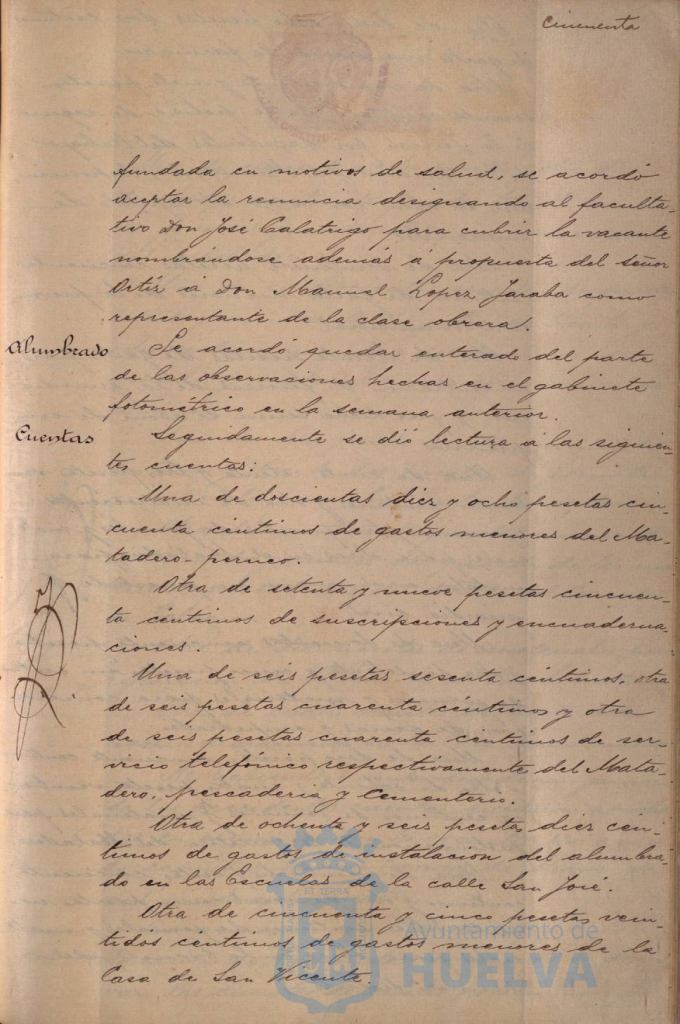 Cincuenta
fundada en motivos de salud, se acordó
aceptar la renuncia designando al faculta-
tivo Don José Calatrigo para cubrir la vacante
nombrándose además á propuesta del señor
Ortíz á Don Manuel Lopez Jaraba como
representante de la clase obrera.
Alumbrado
Se acordó quedar enterado del parte
de las observaciones hechas en el gabinete
fotométrico en la semana anterior.
Cuentas
Seguidamente se dió lectura á las siguien-
tes cuentas:
Una de doscientas diez y ocho pesetas cin-
cuenta céntimos de gastos menores del Ma-
tadero-perneo.
Otra de setenta y nueve pesetas cincuen-
ta céntimos de suscripciones y encuaderna-
ciones.
Una de seis pesetas sesenta céntimos, otra
de seis pesetas cuarenta céntimos y otra
de seis pesetas cuarenta centimos de ser-
vicio telefónico respectivamente del Mata-
dero, pescaderia y Cementerio.
Otra de ochenta y seis pesetas diez cén-
timos de gastos de instalacion del alumbra-
do en las Escuelas de la calle San José.
Otra de cincuenta y cinco pesetas vein-
tidos céntimos de gastos menores de la
Casa de San Vicente.
Ayuntamiento de
HUELVA